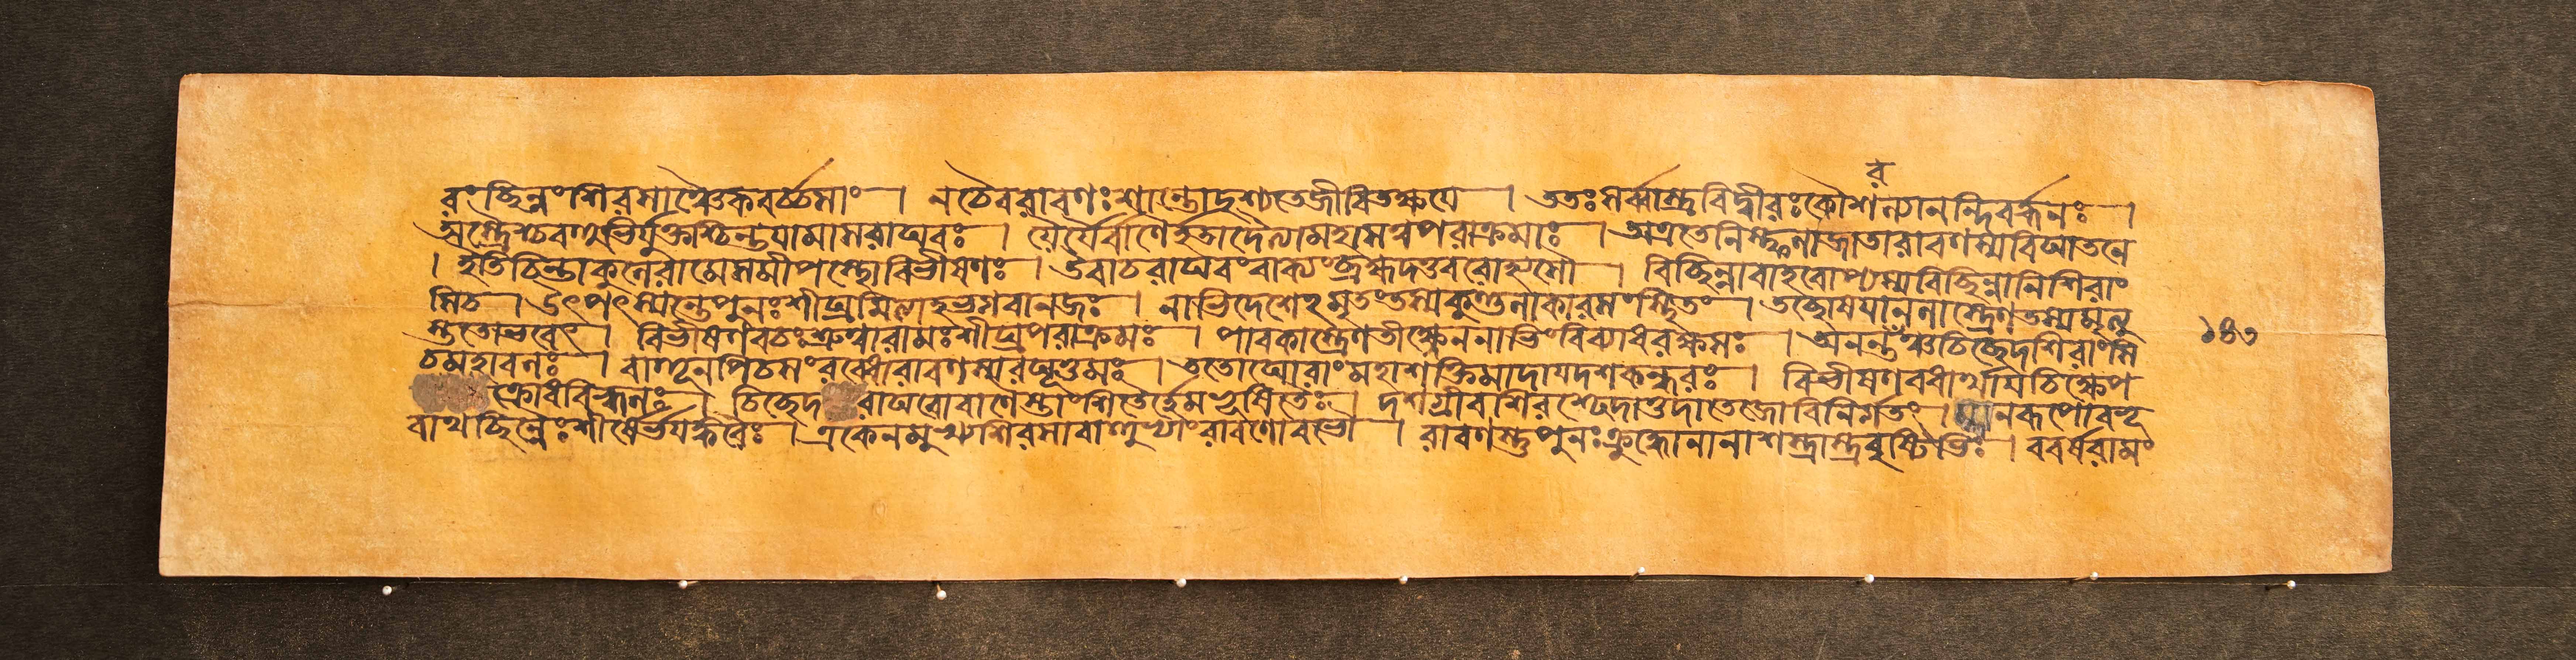 রংছিন্নংশিরসাঞ্চৈকবর্চ্চসাং । নচৈবরাবণঃশান্তোদৃশ্যতেজীবিতক্ষয়ে । ততঃসর্ব্বাস্ত্রবিদ্বীরঃকৌশল্যানন্দিবর্দ্ধনঃ ।
অস্ত্রৈশ্চবহুভির্যুক্তশ্চিন্তয়ামাসরাঘবঃ । যৈর্যৈর্বাণৈর্হতাদৈত্যামহাসত্ত্বপরাক্রমাঃ । অএতেনিষ্ফলাজাতারাবণস্যবিঘাতনে
। ইতিচিন্তাকুলেরামেসমীপস্থোবিভীষণঃ । উবাচরাঘবংবাক্যংব্রহ্মদত্তবরোহ্যসৌ । বিচ্ছিন্নাবাহবোপ্যস্যবিচ্ছিন্নানিশিরাং
সিচ । উৎপৎস্যন্তেপুনঃশীঘ্রমিত্যাহভগবানজঃ । নাভিদেশেঽমৃতংতস্যকুণ্ডলাকারসংস্থিতং । তচ্ছোষয়ানলাস্ত্রেণতস্যমৃত্যু
স্ততোভবেৎ । বিভীষণবচঃশ্রুত্বারামঃশীঘ্রপরাক্রমঃ । পাবকাস্ত্রেণতীক্ষ্ণেননাভিংবিব্যাধরক্ষসঃ । অনন্তরঞ্চচিচ্ছেদশিরাংসি
চমহাবলঃ । বাহূনপিচসংরব্ধোরাবণস্যরঘূত্তমঃ । ততোঘোরাংমহাশক্তিমাদায়দশকন্ধরঃ । বিভীষণবধার্থায়চিক্ষেপ
ক্রোধবিহ্বলঃ । চিচ্ছেদরাঘবোবাণৈস্তাংশিতৈর্হেমভূষিতৈঃ । দশগ্রীবশিরশ্ছেদাত্তদাতেজোবিনির্গতং । ম্লানরূপোবভূ
বাথছিন্নৈঃশীর্ষৈর্ভয়ঙ্করৈঃ । একেনমুখ্যশিরসাবাহুভ্যাংরাবণোবভৌ । রাবণস্তুপুনঃক্রুদ্ধোনানাশস্ত্রাস্ত্রবৃষ্টিভিঃ । ববর্ষরামং